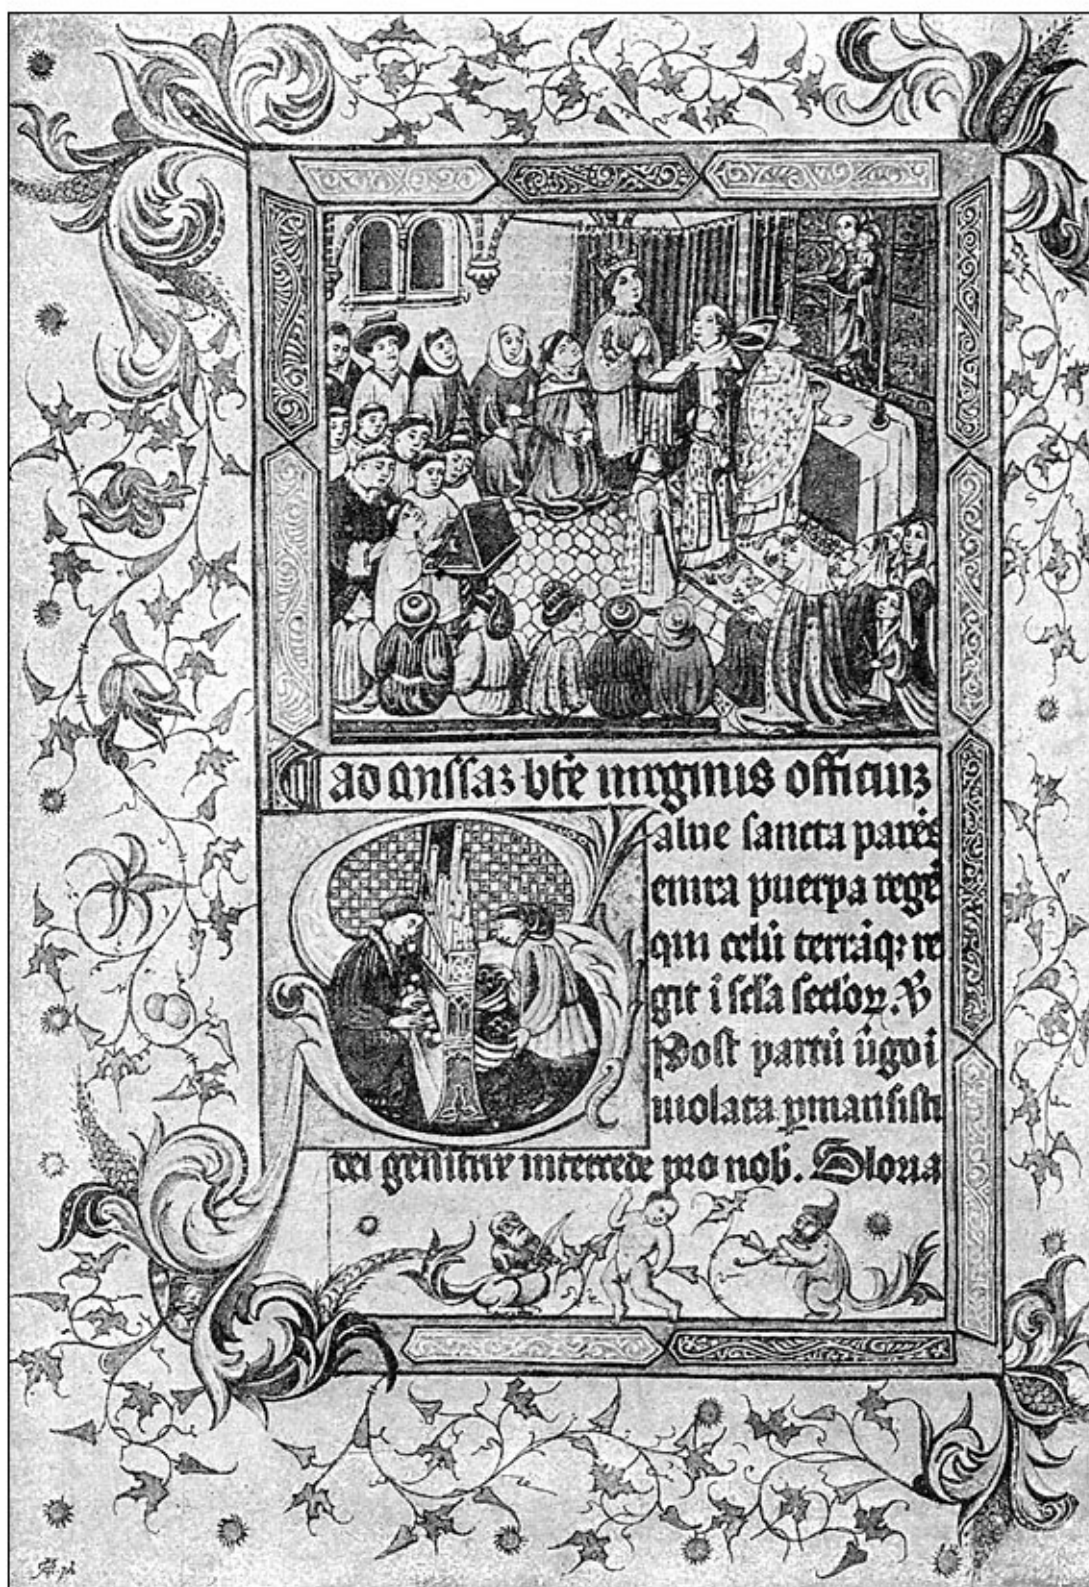 ad missaz bt̄e uirginis officiuz
alue sancta parēs
enixa puerpa regē
qui celū terrāqꝫ re
git i scl̄a secl̄oꝝ. ꝟ
Post partū ūgo i
uiolata ꝑmansisti
dei genitrix intercede pro nob̄. Gloria